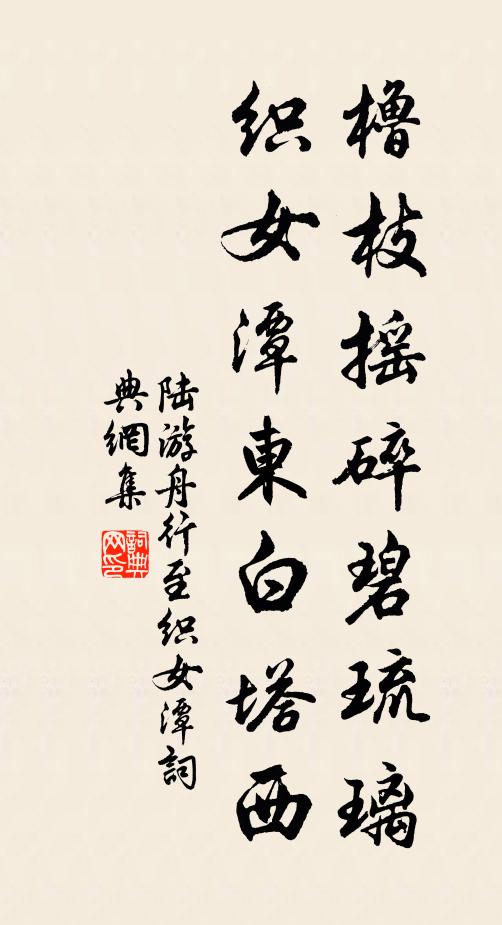 櫓枝摇碎碧琉璃
织女潭東白塔西
陆游舟行至织女潭詞
典網集
詞典网印